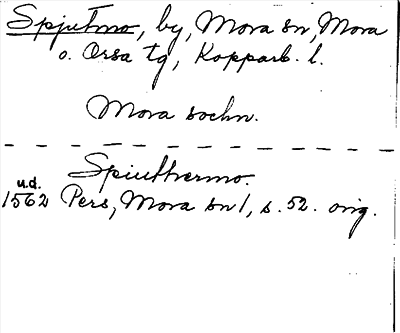 Spjutmo, by, Mora sn, Mora
o. Orsa tg, Kopparb. l.
Mora sochn.
Spiutthermo.
u.d.
1562 Pers, Mora sn 1, s. 52. orig.